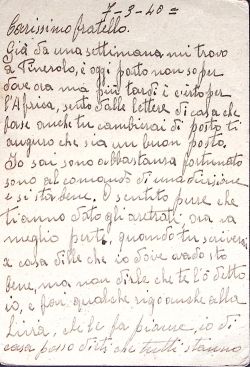 7-3-40=
Carissimo fratello.
Già da una settimana mi trovo
a Pinerolo, e oggi parto non so per
dove ora ma più tardi è certo per
l'Africa, sento dalle lettere di casa che
forse anche tu cambierai di posto ti
auguro che sia un buon posto.
Io sai sono abbastanza fortunato
sono al comando di una divisione
e si sta bene. O sentito pure che
ti anno dato gli ora va
meglio però, quando tu scriverai
a casa dille che io dove vado sto
bene, ma non dirle che te l'ò detto
io, e fai qualche rigo anche alla
Lina, che le fa piacere, io di
casa posso dirti che tutti stanno